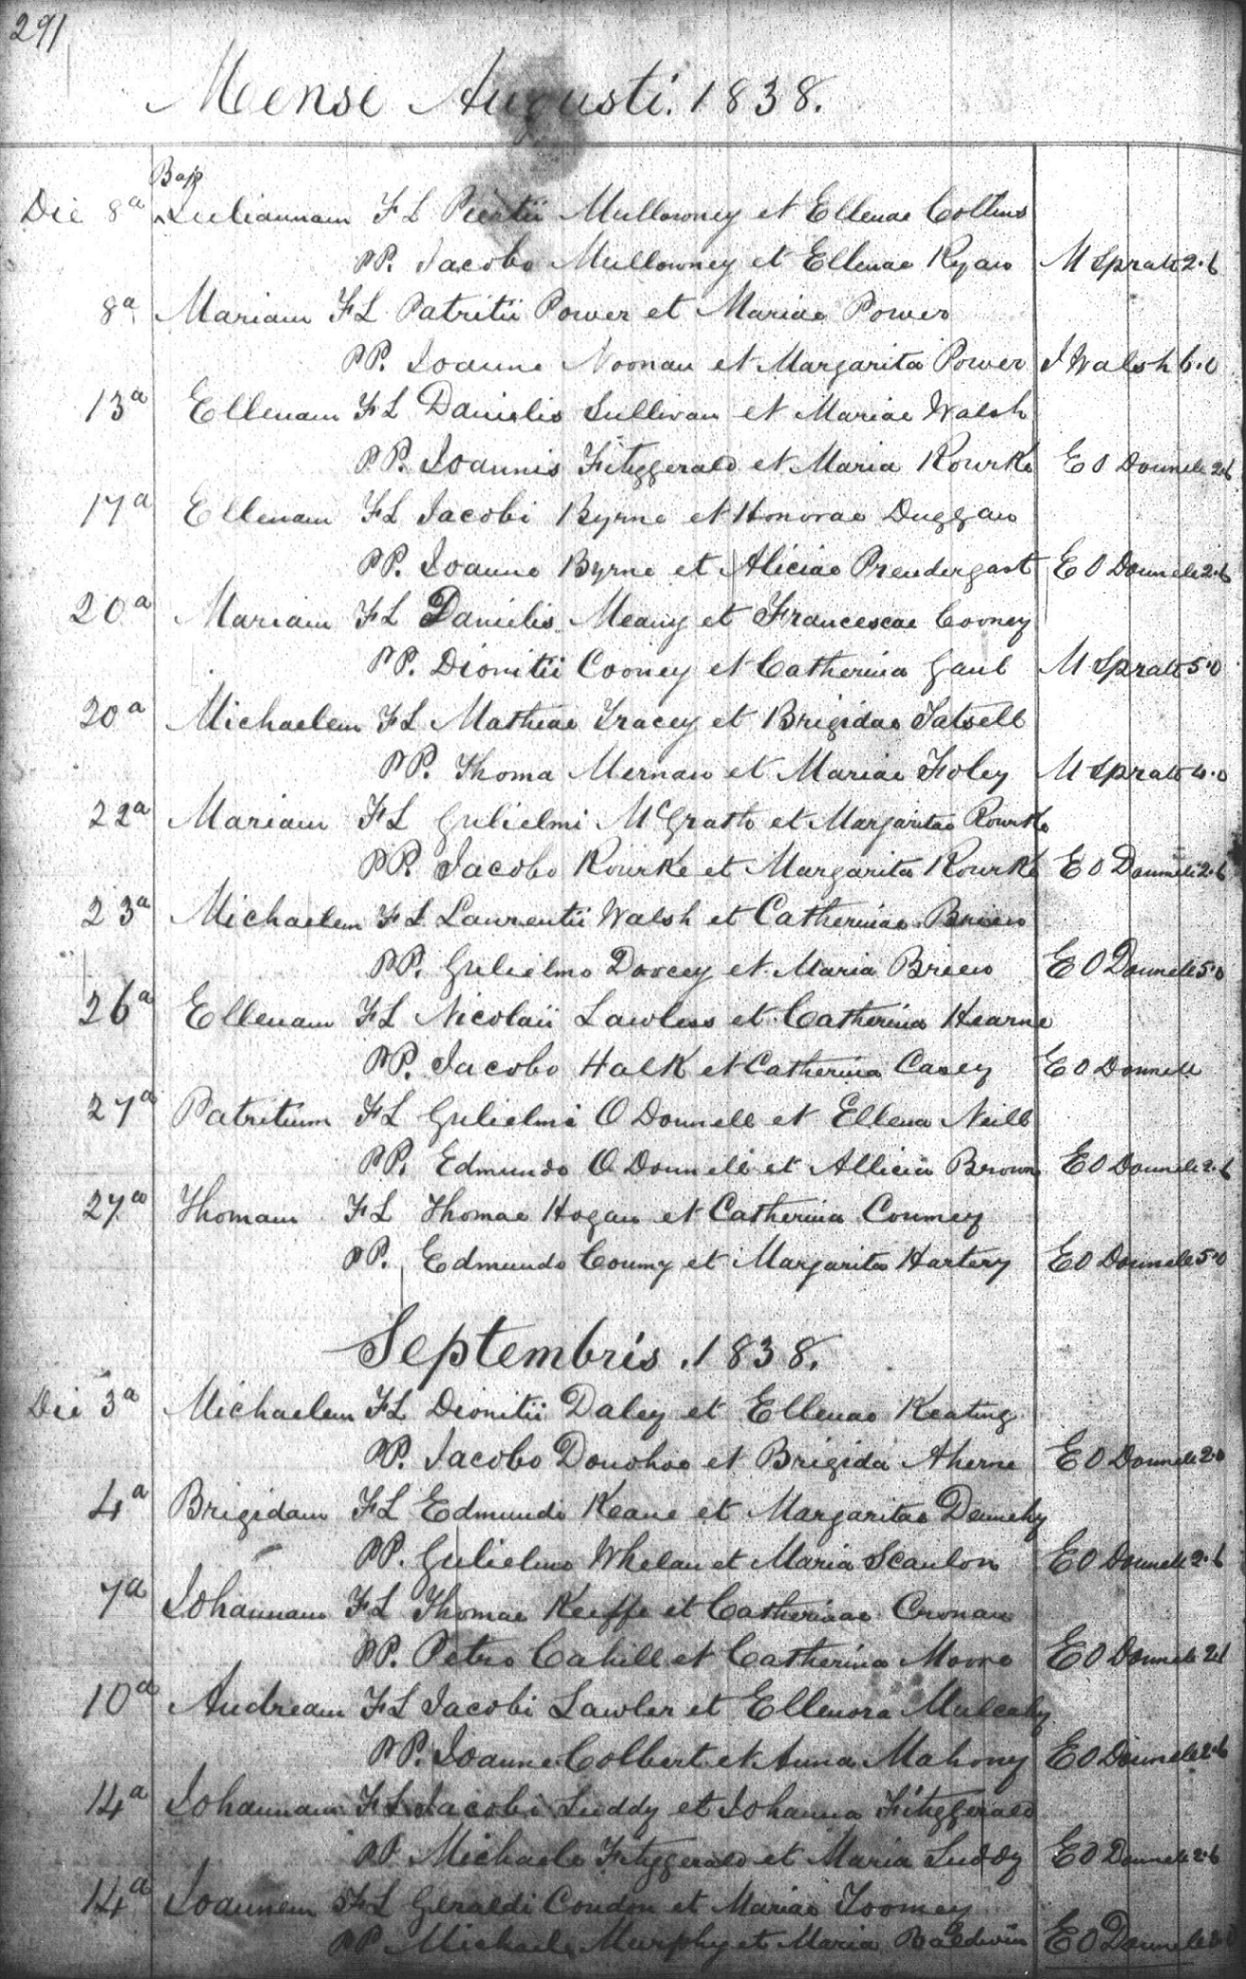 291
Mense Augusti. 1838.
Bap
Die 8a Lulianam FL Piertii Mullowney et Ellenae Collins
PP. Jacobo Mullowney et Ellenae Ryan M Spratt 2.6
8a. Mariam FL Patritii Power et Mariae Power
PP. Joanne Noonan et Margarita Power J Walsh 6.0
13a Ellenam FL Danielis Sullivan et Mariae Walsh
PP. Joannis Fitzggerald et Maria Rourke E O Donnell 2.6
17a Ellenam FL Jacobi Byrne et Honorae Duggan
PP. Joanne Byrne et Aliciae Prendergast E O Donnell 2.6
20a Mariam FL Danielis Meany et Francescae Cooney
PP. Dionitii Cooney et Catherina Gaul M Spratt 5.0
20a Michaelem FL Matheae Tracey et Brigidae Tatsell
PP. Thoma Mernan et Mariae Foley M Spratt 4.0
22a Mariam FL Gulielmi McGrath et Margaritae Rourke
PP. Jacobo Rourke et Margarita Rourke E O Donnell 2.6
23a Michaelem FL Laurentii Walsh et Catherinae Brien
PP. Gulielmo Doocey et Maria Brien E O Donnell 5.0
26a Ellenam FL Nicolaii Lawless et Catherina Hearne
PP. Jacobo Halk et Catherina Casey E O Donnell
27a Patritium FL Gulielmi O Donnell et Ellena Neill
PP. Edmundo O Donnell et Allicia Brown E O Donnell 2.6
27a Thomam FL Thomae Hogan et Catherina Coumey
PP. Edmundo Coumy et Margarita Hartery E O Donnell 5.0
Septembris. 1838.
Die 3a Michaelem FL Dionitii Daley et Ellenae Keating
PP. Jacobo Donohoe et Brigida Aherne E O Donnell 2.0
4a Brigidam FL Edmundi Keane et Margaritae Dennehy
PP. Gulielmo Whelan et Maria Scanlon E O Donnell 2.6
7a Johannam FL Thomae Keiffe et Catherinae Cronan
PP. Petro Cahill et Catherina Moore E O Donnell
10a Andream FL Jacobi Lawler et Ellenora Mulcahy
PP. Joanne Colbert et Anna Mahony E O Donnell 2.6
14a Johannam FL Jacobi Luddy et Johanna Fitzggerald
PP Michaele Fitzggerald et Maria Luddy E O Donnell 2.6
14a Joannem FL Geraldi Condon et Mariae Toomey
PP Michaele Murphy et Maria Baldwin E O Donnell